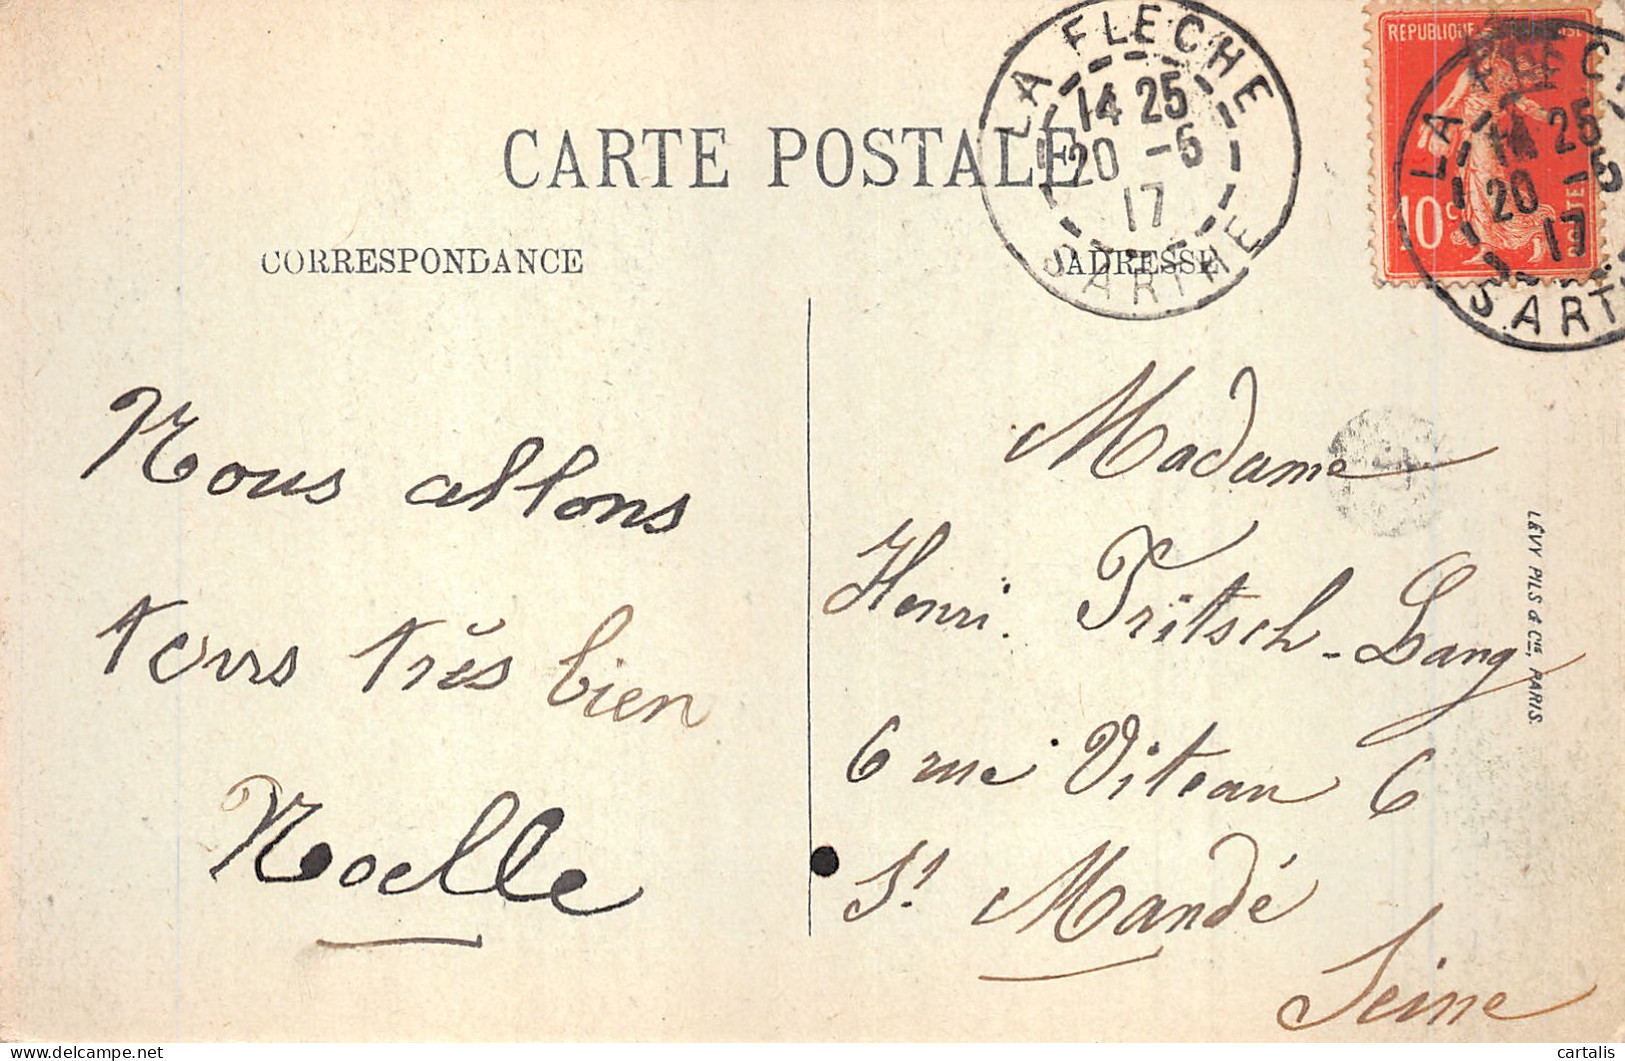 CARTE POSTALE
CORRESPONDANCE
ADRESSE
LA FLECHE
14 25
20 -5
17
SARTHE
REPUBLIQUE
10 c
LA FLEC
14 25
20 -5
17
SART
Nous allons
tous très bien
Noelle
Madame
Henri Fritsch-Lang
6 rue Viteau 6
St Mandé
Seine
LÉVY FILS & Cie, PARIS.
cartalis